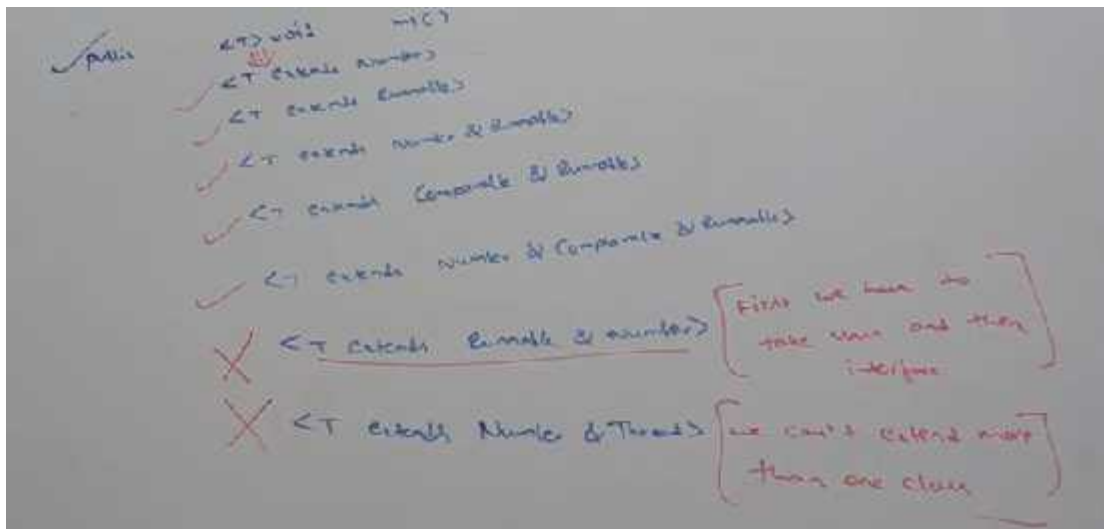 public <T> void m1()
<T extends Number>
<T extends Runnable>
<T extends Number & Runnable>
<T extends Comparable & Runnable>
<T extends Number & Comparable & Runnable>
<T extends Runnable & Number> [First we have to
take class and then
interface]
<T extends Number & Thread> [we can't extend more
than one class]